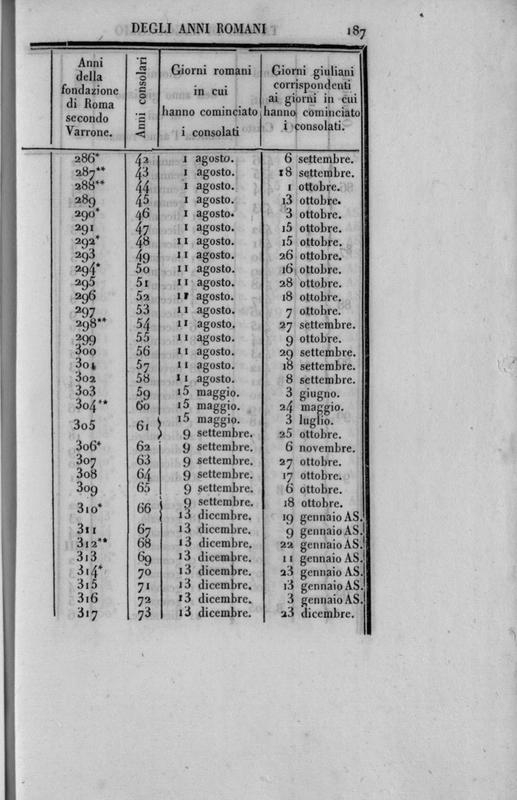 DEGLI ANNI ROMANI 187
Anni della fondazione di Roma secondo Varrone. | Anni consolari | Giorni romani in cui hanno cominciato i consolati | Giorni giuliani corrispondenti ai giorni in cui hanno cominciato i consolati.
286* 42 1 agosto. 6 settembre.
287** 43 1 agosto. 18 settembre.
288** 44 1 agosto. 1 ottobre.
289 45 1 agosto. 13 ottobre.
290* 46 1 agosto. 3 ottobre.
291 47 1 agosto. 15 ottobre.
292* 48 11 agosto. 15 ottobre.
293 49 11 agosto. 26 ottobre.
294* 50 11 agosto. 16 ottobre.
295 51 11 agosto. 28 ottobre.
296 52 11 agosto. 18 ottobre.
297 53 11 agosto. 7 ottobre.
298** 54 11 agosto. 27 settembre.
299 55 11 agosto. 9 ottobre.
300 56 11 agosto. 29 settembre.
301 57 11 agosto. 18 settembre.
302 58 11 agosto. 8 settembre.
303 59 15 maggio. 3 giugno.
304** 60 15 maggio. 24 maggio.
305 61 15 maggio. 3 luglio.
9 settembre. 25 ottobre.
306* 62 9 settembre. 6 novembre.
307 63 9 settembre. 27 ottobre.
308 64 9 settembre. 17 ottobre.
309 65 9 settembre. 6 ottobre.
310* 66 9 settembre. 18 ottobre.
13 dicembre. 19 gennaio AS.
311 67 13 dicembre. 9 gennaio AS.
312** 68 13 dicembre. 22 gennaio AS.
313 69 13 dicembre. 11 gennaio AS.
314* 70 13 dicembre. 23 gennaio AS.
315 71 13 dicembre. 13 gennaio AS.
316 72 13 dicembre. 3 gennaio AS.
317 73 13 dicembre. 23 dicembre.